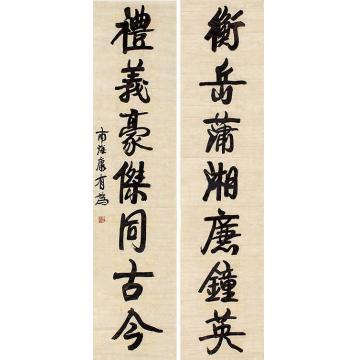 衡岳蒲湘廉鐘英
禮義豪傑同古今
南海康有為